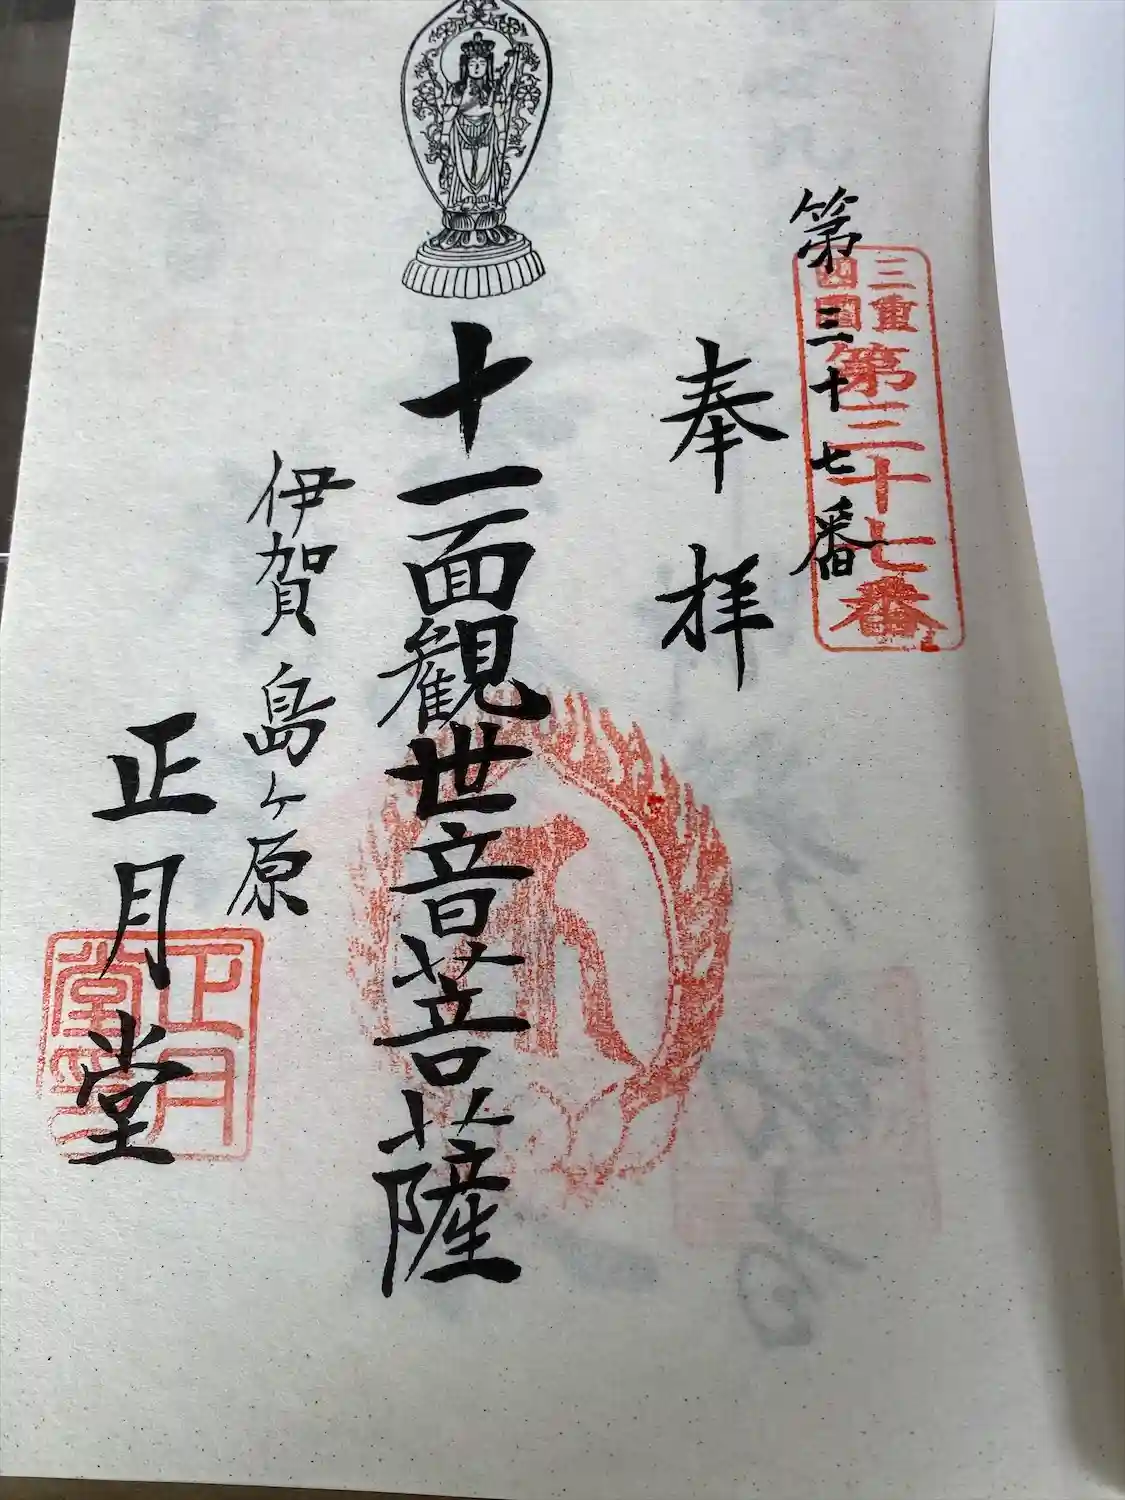 三重
四国
第三十七番
第三十七番
奉拝
十一面観世音菩薩
伊賀島ヶ原
正月堂
正月
堂印